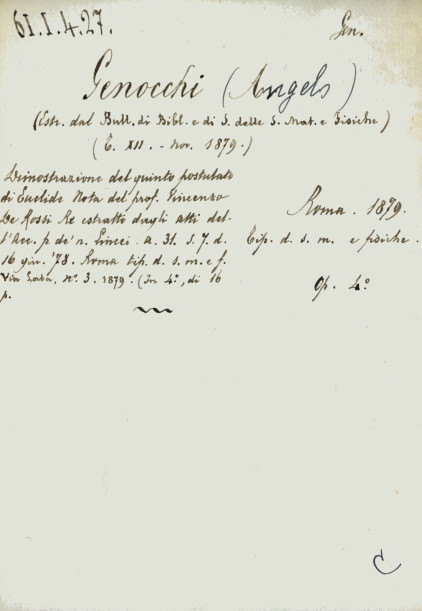 61.I.4.27.
Gen.
Genocchi (Angelo)
(Estr. dal Bull. di Bibl. e di S. delle S. Mat. e Fisiche)
(T. XII. - Nov. 1879.)
Dimostrazione del quinto postulato
di Euclide Nota del prof. Vincenzo
De Rossi Re estratto dagli atti del-
l'Acc. p. de' n. Lincei. a. 31. s. 7. d.
16 giu. '78. Roma tip. d. s. m. e f.
Via Lata, nº. 3. 1879. (In 4º, di 16
p.
Roma. 1879.
Tip. d. s. m. e fisiche.
Op. 4º
C